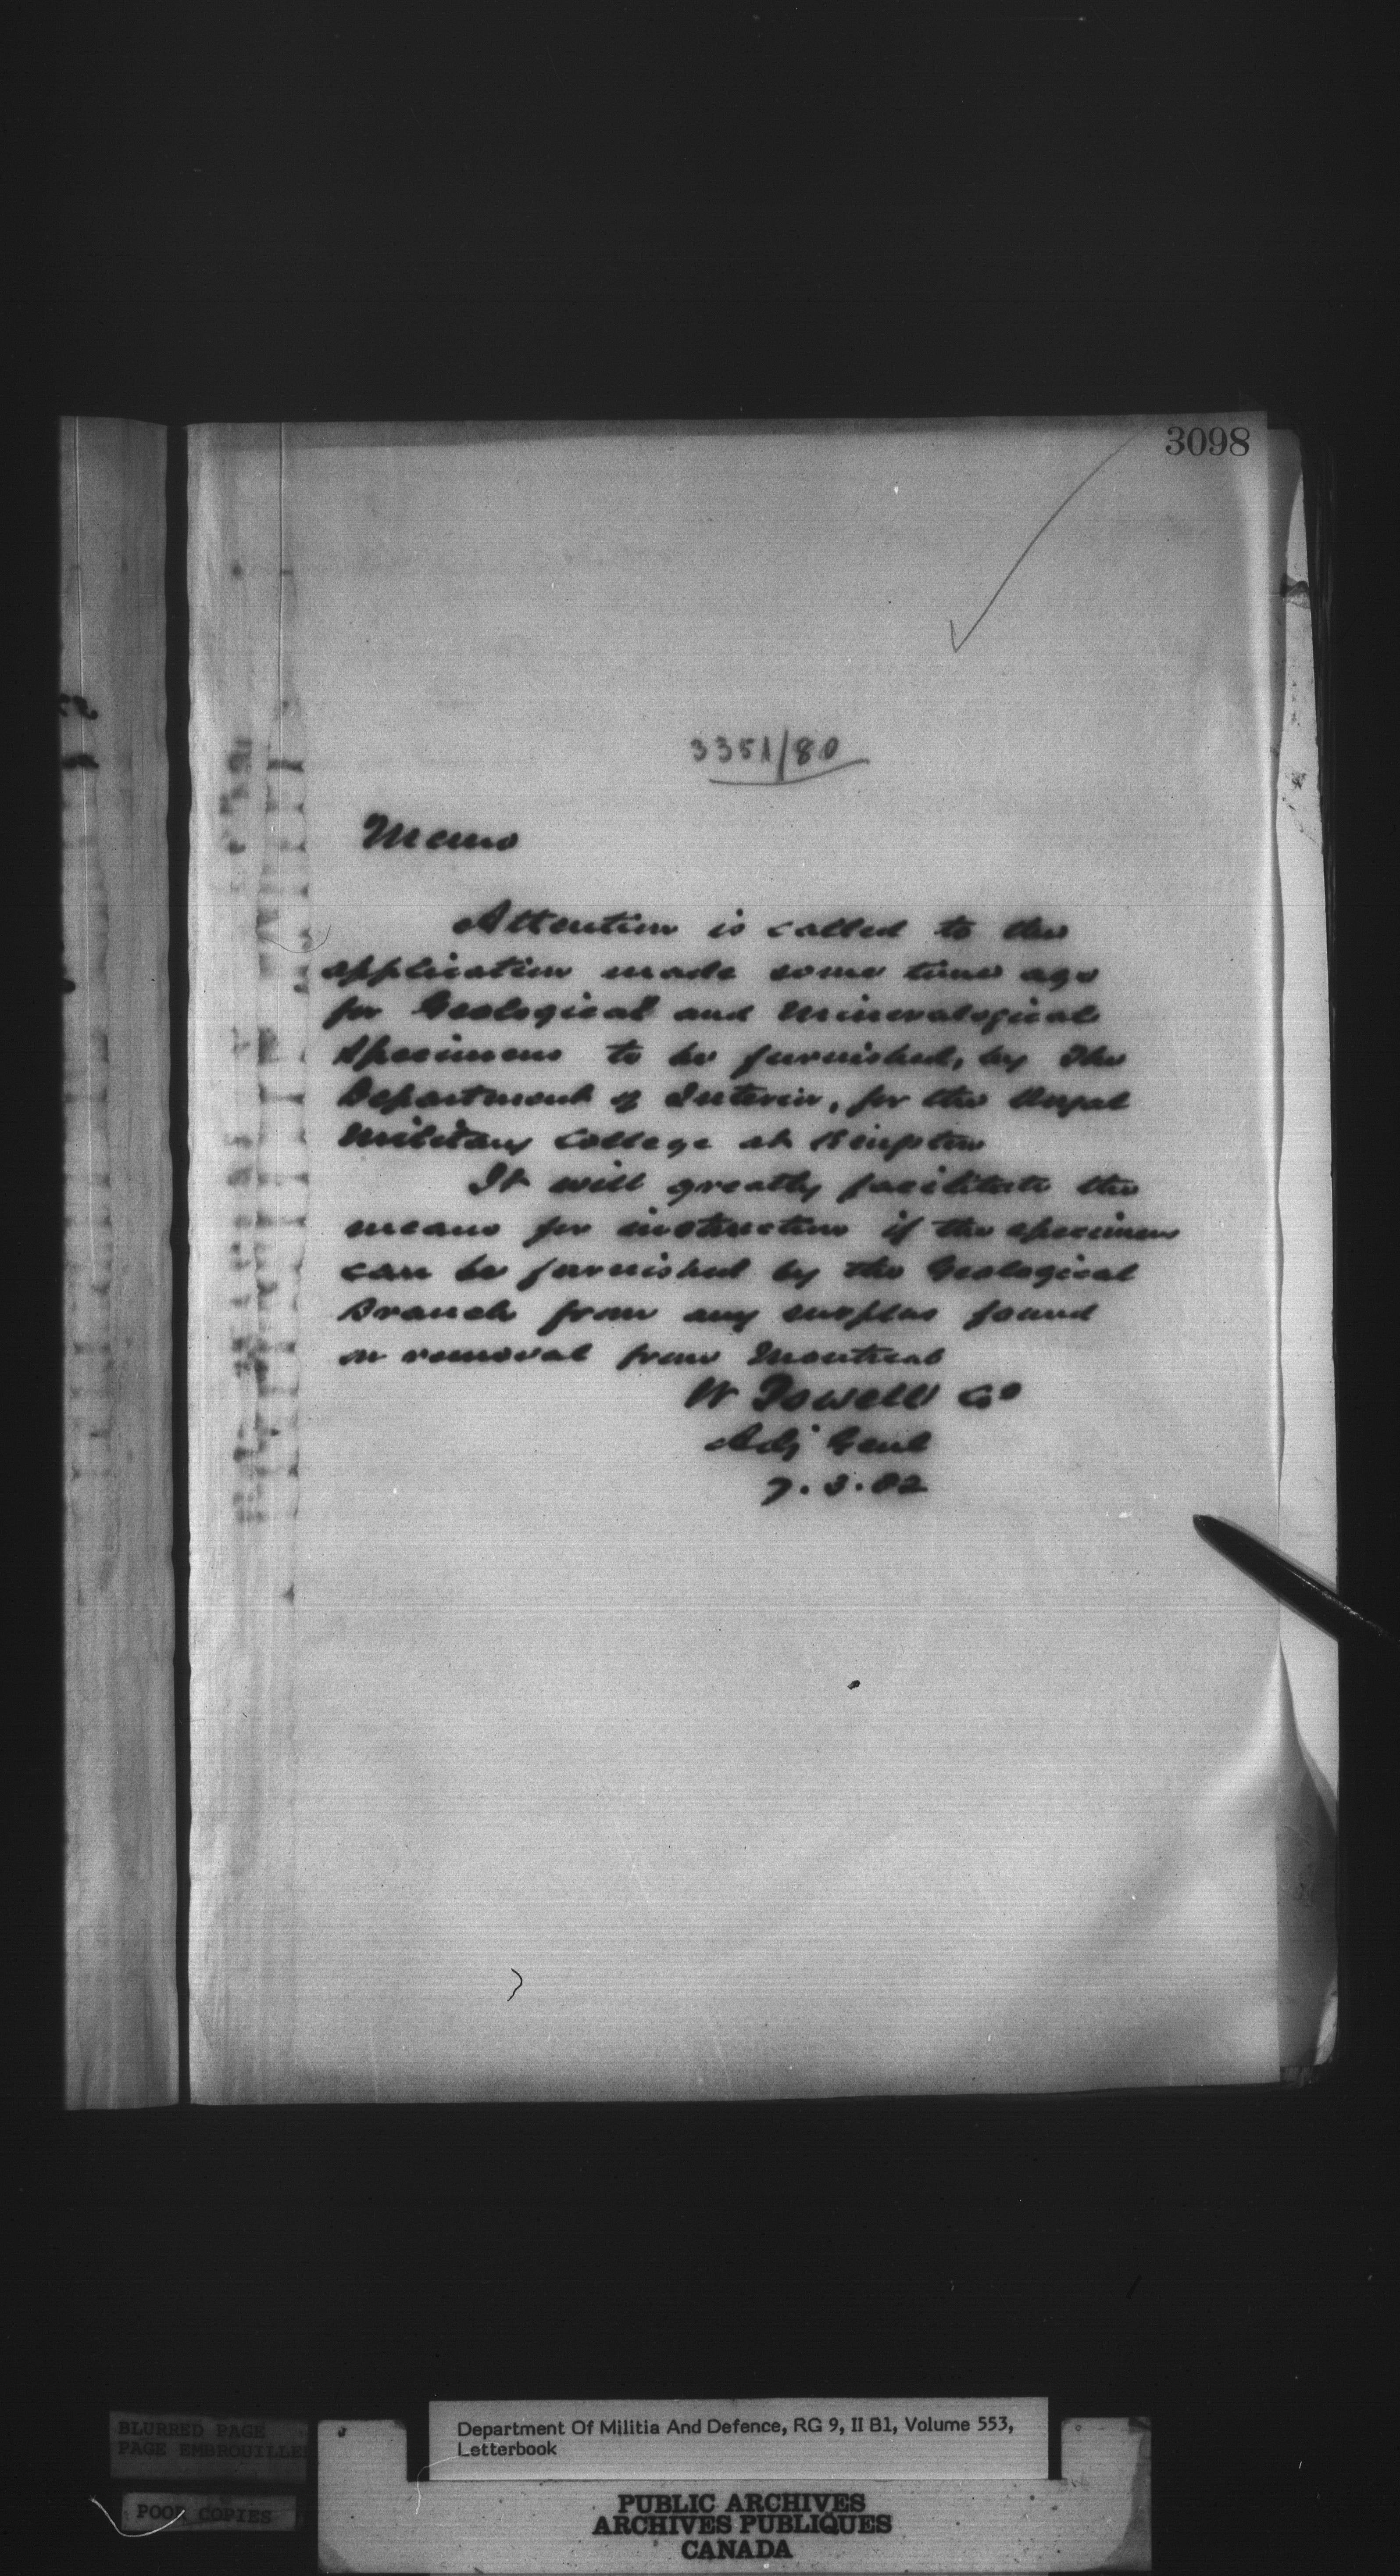 3098
3351/80
Memo
Attention is called to the
application made some time ago
for Geological and Mineralogical
Specimens to be furnished, by the
Department of Interior, for the Royal
Military College at Kingston
It will greatly facilitate the
means for instruction if the specimens
can be furnished by the Geological
Branch from any surplus found
on removal from Montreal
W Powell Col
Adj Genl
7.3.82
BLURRED PAGE
PAGE EMBROUILLEE
POOR COPIES
Department Of Militia And Defence, RG 9, II B1, Volume 553,
Letterbook
PUBLIC ARCHIVES
ARCHIVES PUBLIQUES
CANADA